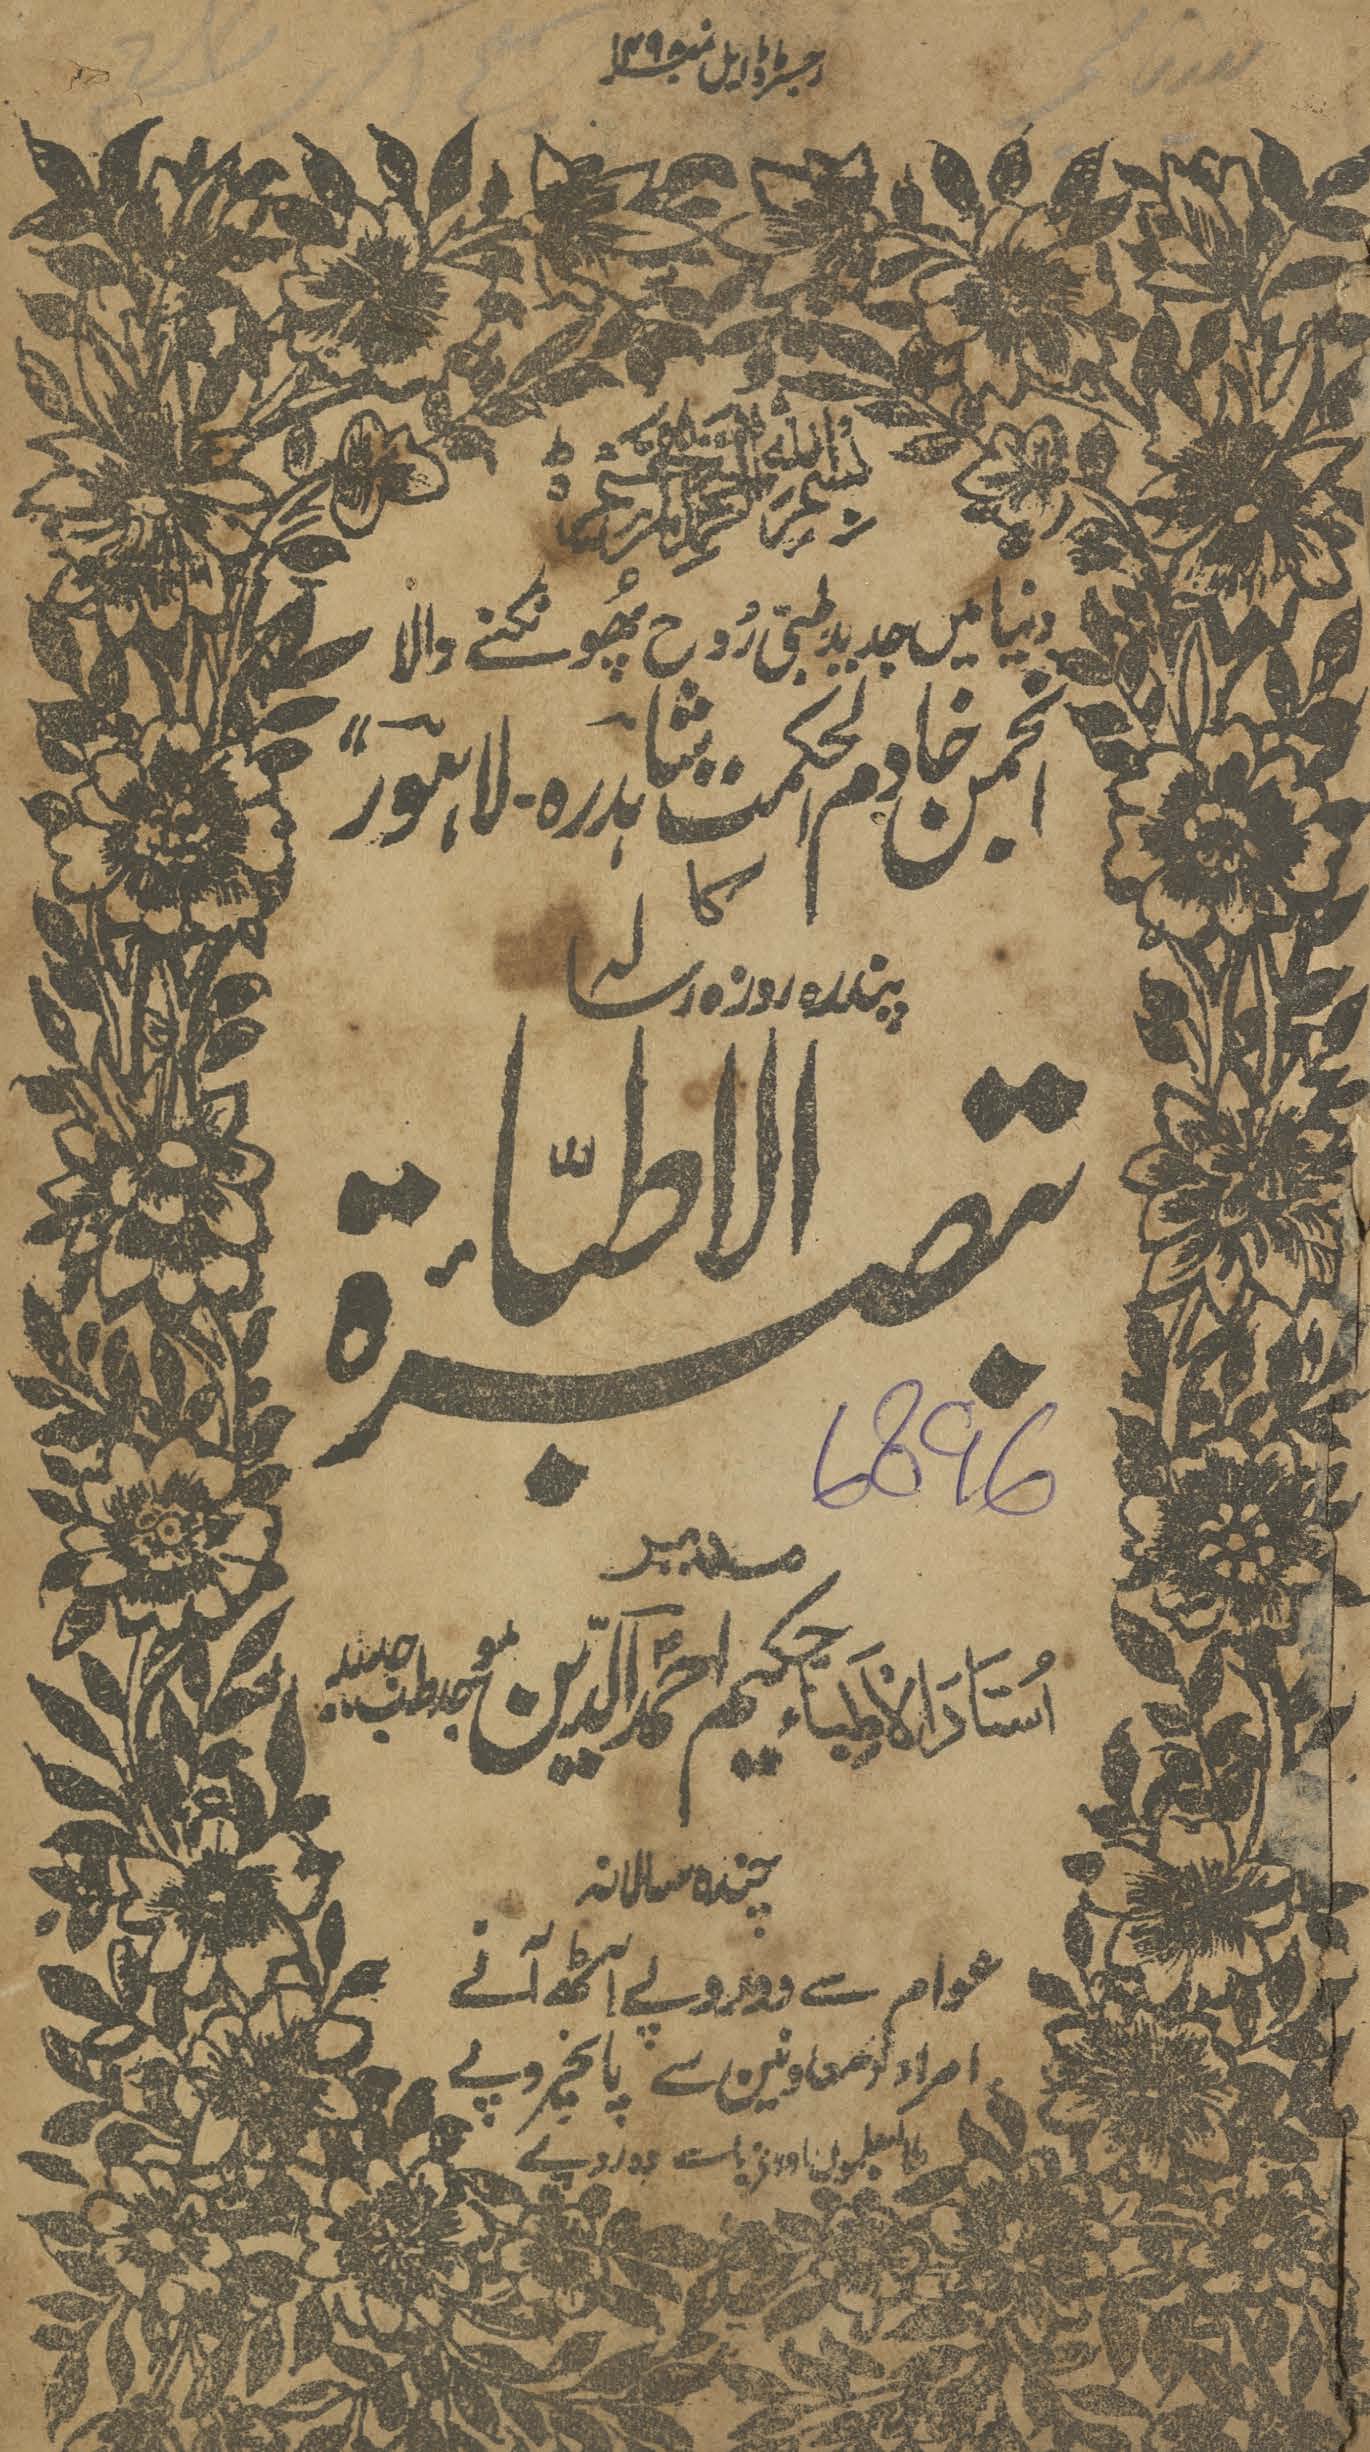 رجسٹرڈ ایل نمبر
بسم اللہ الرحمن الرحیم ط
دنیا میں جدید طبی رُوح پھُونکنے والا
انجمن خادم الحکمت شاہدرہ۔ لاہور"
کا
پندرہ روزہ رسالہ
تبصرۃ الاطبّاء
6896
مدیر
اُستاذ الاطباء حکیم احمد الدّین موجد طب جدید
چندہ سالانہ
عوام سے دو روپے آٹھ آنے
امراء و معاونین سے پانچروپے
دو روپے